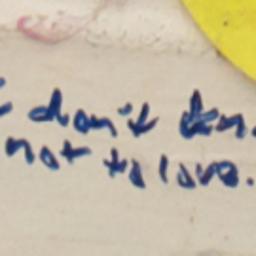 don't
not to love.